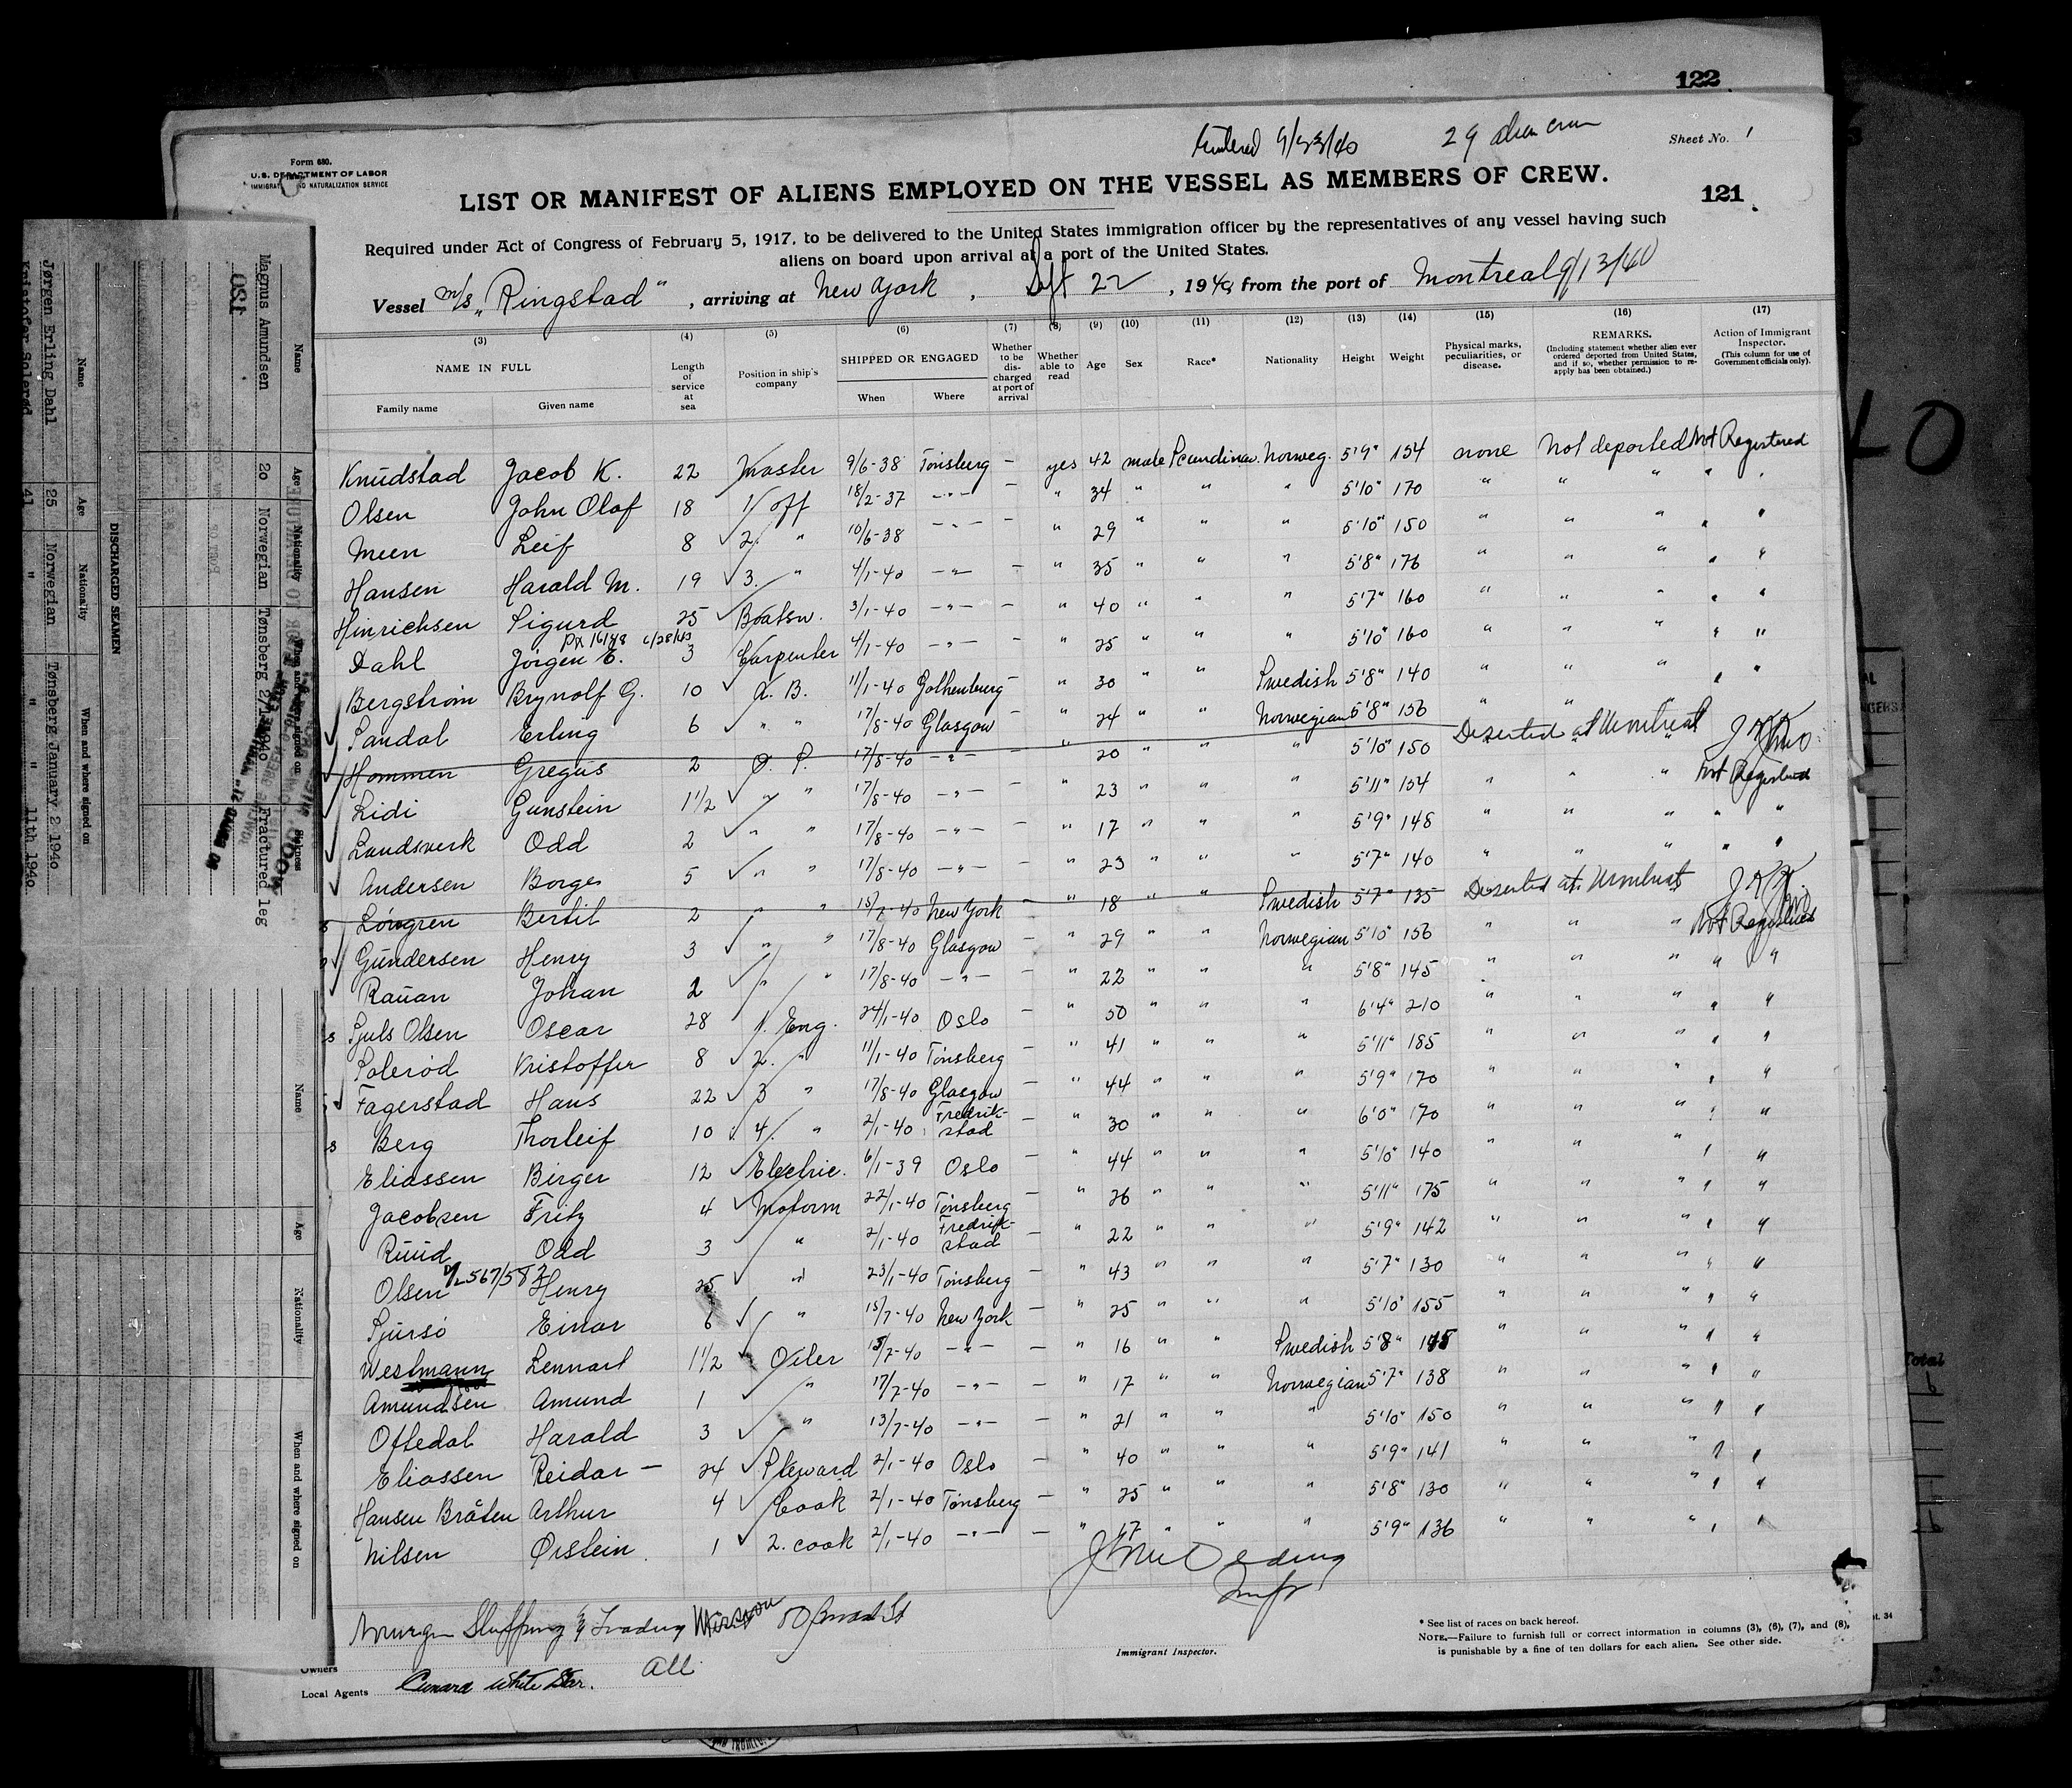 122
Entered 9/23/40
29 alien crew
Sheet No. 1
Form 680.
U.S. DEPARTMENT OF LABOR
IMMIGRATION AND NATURALIZATION SERVICE
LIST OR MANIFEST OF ALIENS EMPLOYED ON THE VESSEL AS MEMBERS OF CREW.
121
Required under Act of Congress of February 5, 1917, to be delivered to the United States immigration officer by the representatives of any vessel having such
aliens on board upon arrival at a port of the United States.
Vessel m/s "Ringstad", arriving at New York, Sept 22, 1940 from the port of Montreal 9/13/40
(3) (4) (5) (6) (7) (8) (9) (10) (11) (12) (13) (14) (15) (16) (17)
NAME IN FULL Family name Given name
Length of service at sea
Position in ship's company
SHIPPED OR ENGAGED When Where
Whether to be discharged at port of arrival
Whether able to read
Age Sex Race* Nationality Height Weight
Physical marks, peculiarities, or disease.
REMARKS. (Including statement whether alien ever ordered deported from United States, and if so, whether permission to re-apply has been obtained.)
Action of Immigrant Inspector. (This column for use of Government officials only).
Knudstad Jacob K. 22 Master 9/6-38 Tönsberg – yes 42 male Scandinav. Norweg. 5'9" 154 none not deported Not Registered
Olsen John Olaf 18 1/ off 18/2-37 -"- – " 34 " " " 5'10" 170 " " " " "
Meen Leif 8 2. " 10/6-38 -"- – " 29 " " " 5'10" 150 " " " " "
Hansen Harald M. 19 3. " 4/1-40 -"- – " 35 " " " 5'8" 176 " " " " "
Hinrichsen Sigurd 25 Boatsw. 3/1-40 -"- – " 40 " " " 5'7" 160 " " " " "
6/28/43
Dahl Jörgen E. 3 Carpenter 4/1-40 -"- " 25 " " " 5'10" 160 " " " " "
Bergström Brynolf G. 10 A. B. 11/1-40 Gothenburg – " 30 " " Swedish 5'8" 140 " " " " "
Sandal Erling 6 " " 17/8-40 Glasgow – " 24 " " Norwegian 5'8" 156 " "
Hommen Gregus 2 O. S. 17/8-40 -"- – " 20 " " " 5'10" 150 Deserted at Montreal
Lidi Gunstein 1 1/2 " " 17/8-40 -"- – " 23 " " " 5'11" 154 " " " Not Registered
Landsverk Odd 2 " " 17/8-40 -"- – " 17 " " " 5'9" 148 " " " " "
Andersen Borges 5 " " 17/8-40 -"- – " 23 " " " 5'7" 140 " " " " "
Löngren Bertil 2 " " 15/7-40 New York – " 18 " " Swedish 5'7" 135 Deserted at Montreal
Gundersen Henry 3 " " 17/8-40 Glasgow – " 29 " " Norwegian 5'10" 156 " " " Not Registered
Rauan Johan 2 " " 17/8-40 -"- – " 22 " " " 5'8" 145 " " " " "
Sjuls Olsen Oscar 28 1. Eng. 24/1-40 Oslo – " 50 " " " 6'4" 210 " " " " "
Solerød Kristoffer 8 2. " 11/1-40 Tönsberg – " 41 " " " 5'11" 185 " " " " "
Fagerstad Hans 22 3 " 17/8-40 Glasgow – " 44 " " " 5'9" 170 " " " " "
Berg Thorleif 10 4. " 2/1-40 Fredrikstad – " 30 " " " 6'0" 170 " " " " "
Eliassen Birger 12 Electric. 6/1-39 Oslo – " 44 " " " 5'10" 140 " " " " "
Jacobsen Fritz 4 Motorm 22/1-40 Tönsberg – " 26 " " " 5'11" 175 " " " " "
Ruud Odd 3 " 2/1-40 Fredrikstad – " 22 " " " 5'9" 142 " " " " "
Olsen Henry 25 " 23/1-40 Tönsberg – " 43 " " " 5'7" 130 " " " " "
Sjursö Einar 6 " 15/7-40 New York – " 25 " " " 5'10" 155 " " " " "
Westmann Lennart 1 1/2 Oiler 15/7-40 -"- – " 16 " " Swedish 5'8" 145 " " " " "
Amundsen Amund 1 " 17/7-40 -"- – " 17 " " Norwegian 5'7" 138 " " " " "
Oftedal Harald 3 " 13/7-40 -"- – " 21 " " " 5'10" 150 " " " " "
Eliassen Reidar – 24 Steward 2/1-40 Oslo – " 40 " " " 5'9" 141 " " " " "
Hansen Bråten Arthur 4 Cook 2/1-40 Tönsberg – " 25 " " " 5'8" 130 " " " " "
Nilsen Ørstein 1 2. cook 2/1-40 -"- – " 17 " " " 5'9" 136 " " " " "
Shipping & Trading Mission 50 Broad St
Owners
Local Agents Cunard White Star.
All
Immigrant Inspector.
* See list of races on back hereof.
NOTE.—Failure to furnish full or correct information in columns (3), (6), (7), and (8),
is punishable by a fine of ten dollars for each alien. See other side.
120
Name Age Nationality When and where signed on Sickness
Magnus Amundsen 20 Norwegian Tønsberg 2/1-1940 Fractured leg
DISCHARGED SEAMEN
Name Age Nationality When and where signed on
Jørgen Erling Dahl 25 Norwegian Tønsberg January 2 1940
Kristofer Solerød 41 " " " 11th 1940
Name Age Nationality When and where signed on
Total